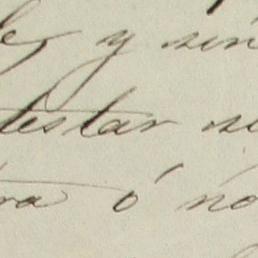 y sin
testar si
ra ó no